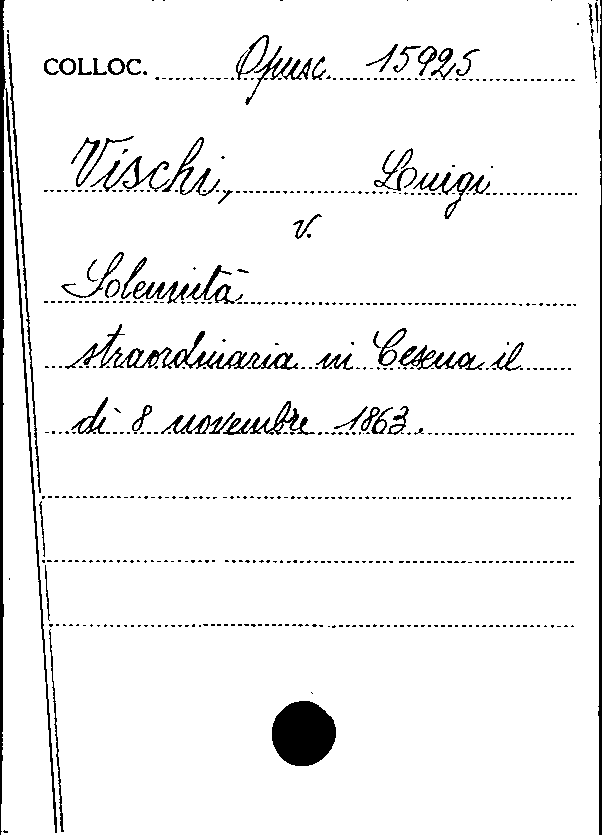 COLLOC. Opusc. 15925
Vischi, Luigi
v.
Solennità
straordinaria in Cesena il
dì 8 novembre 1863.